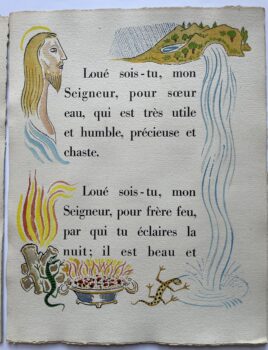 Loué sois-tu, mon
Seigneur, pour sœur
eau, qui est très utile
et humble, précieuse et
chaste.
Loué sois-tu, mon
Seigneur, pour frère feu,
par qui tu éclaires la
nuit; il est beau et